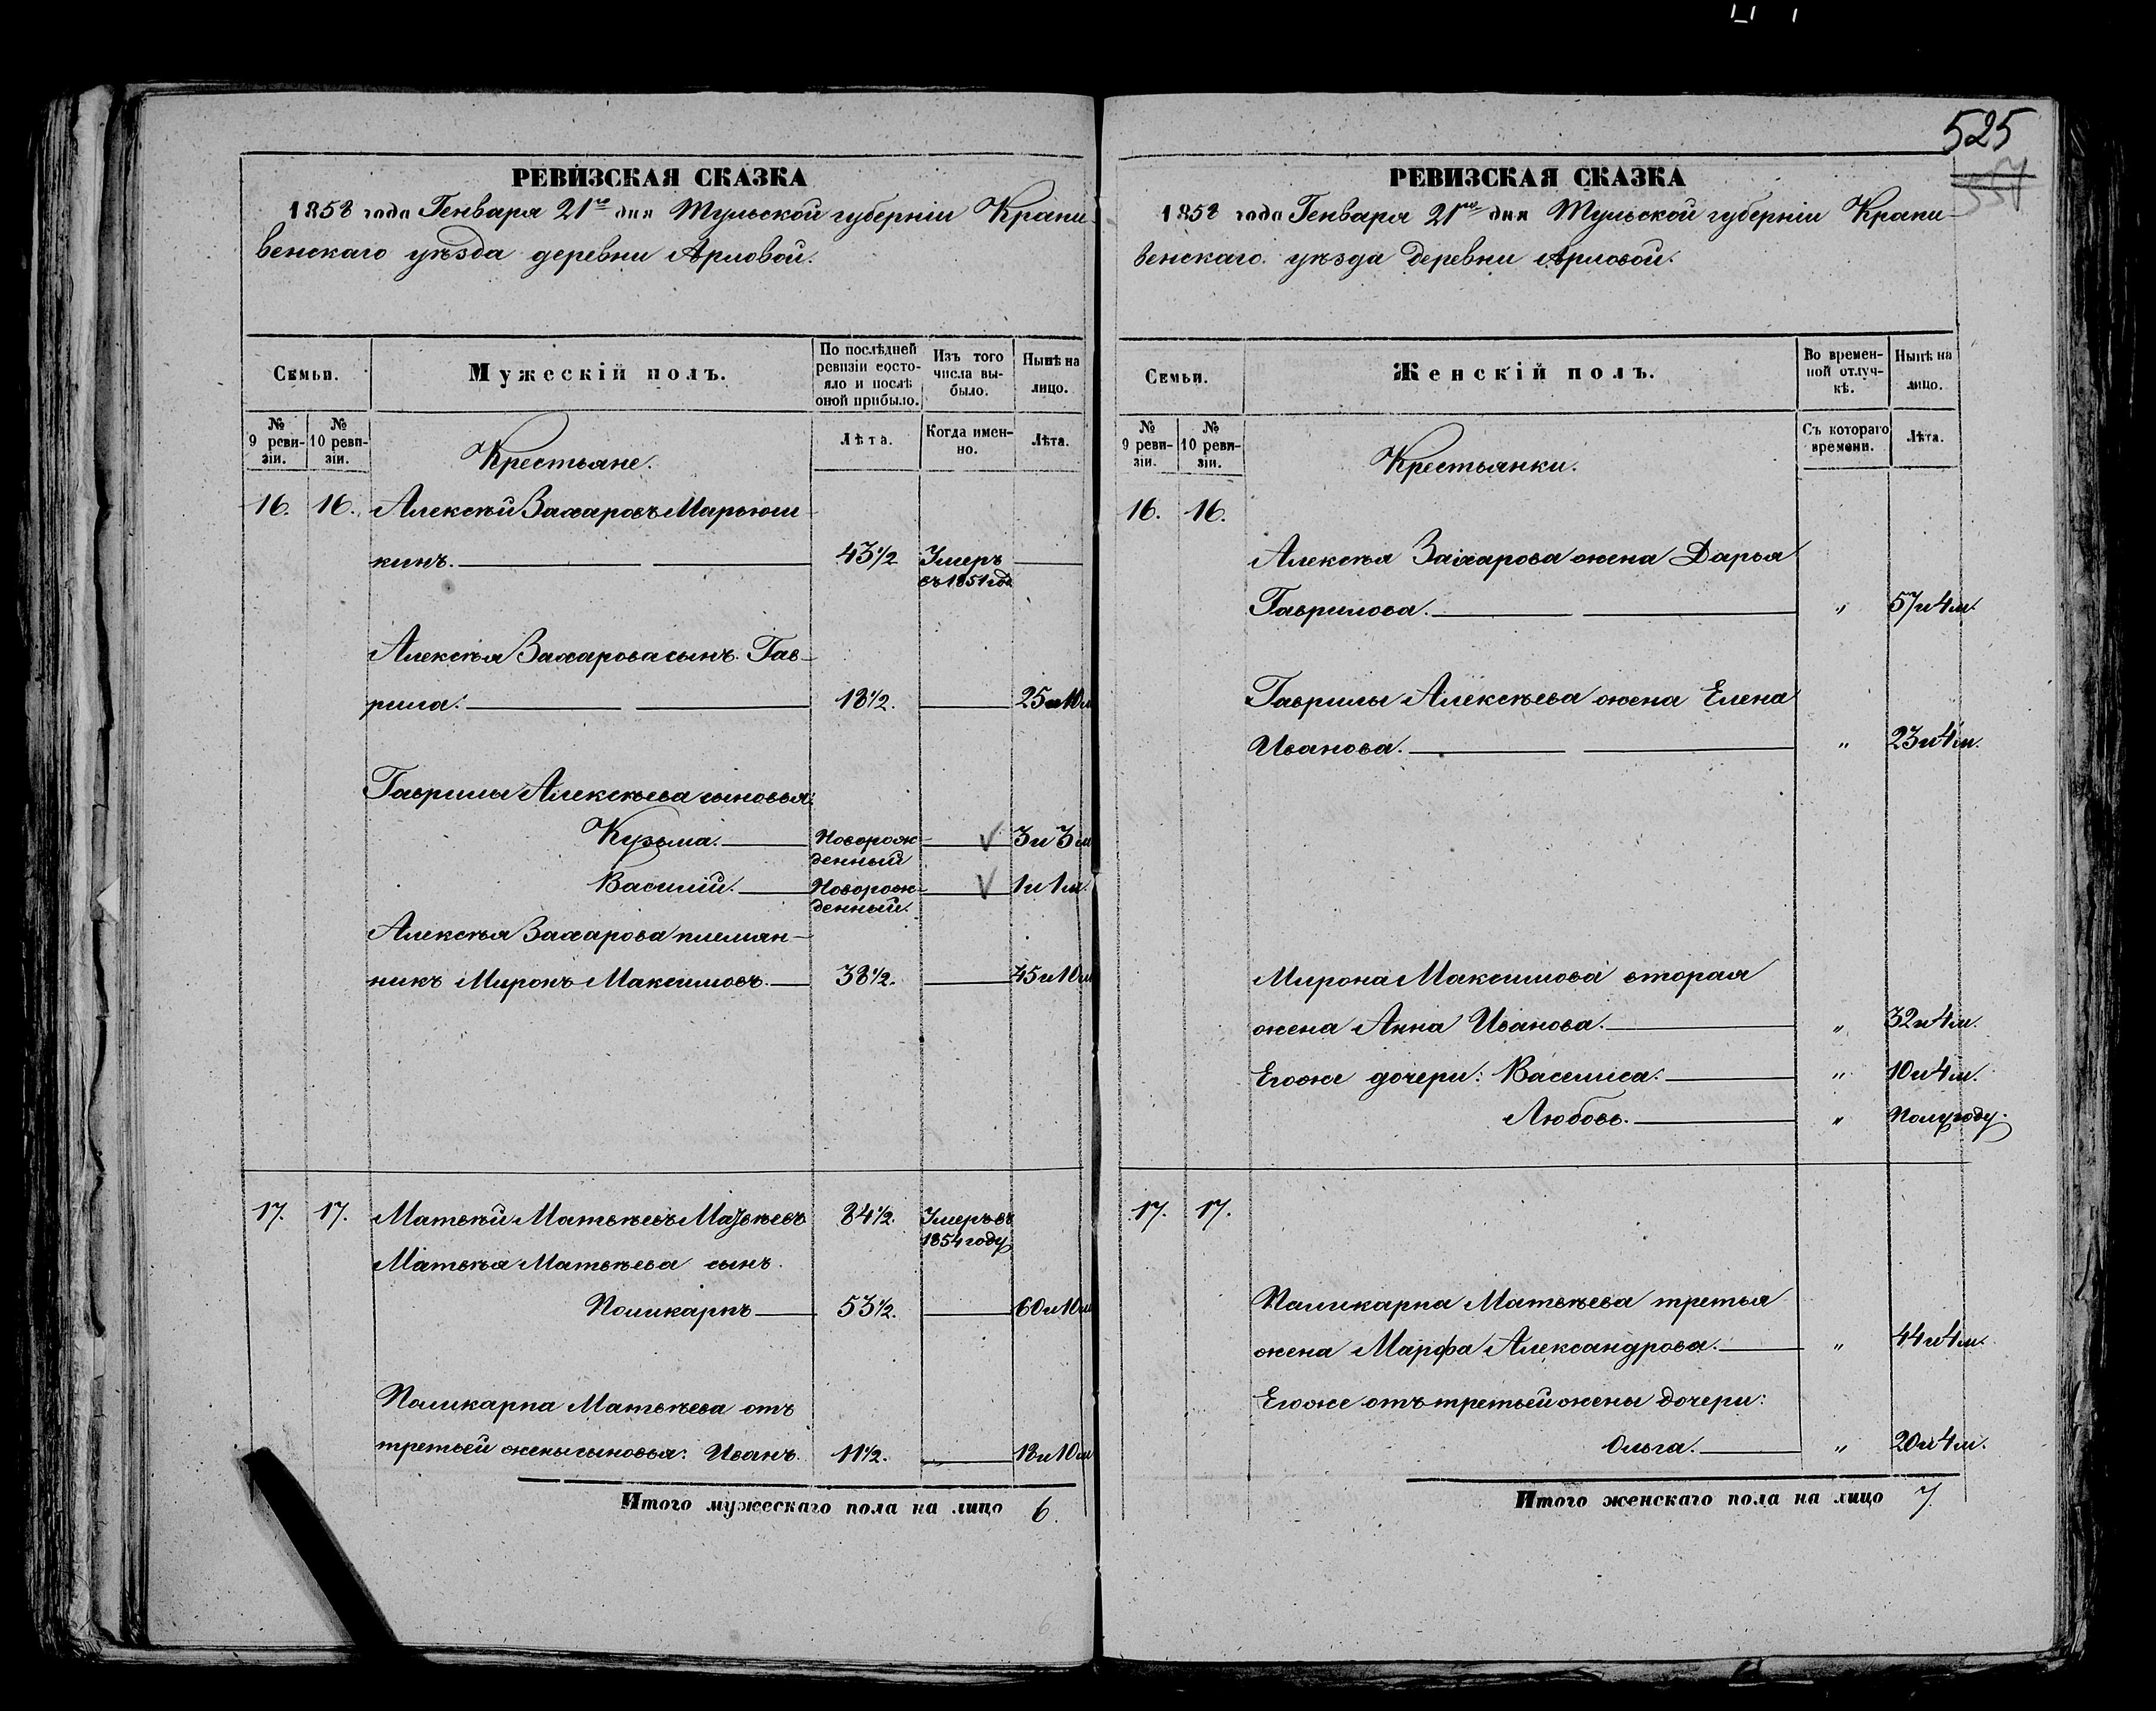 525
557
РЕВИЗСКАЯ СКАЗКА
1858 года Генваря 21го дня Тульской губерніи Крапи
венскаго уѣзда деревни Арловой.
Семьи.
Мужескій полъ.
По послѣдней ревизіи состояло и послѣ оной прибыло.
Изъ того числа выбыло.
Нынѣ на лицо.
№ 9 ревизіи.
№ 10 ревизіи.
Крестьяне.
Лѣта.
Когда именно.
Лѣта.
16. 16. Алексѣй Захаровъ Марьюш
кинъ. 43½ Умеръ
въ 1851 год
Алексѣя Захарова сынъ Гав-
рила. 18½. 25 и 10 м
Гаврилы Алексѣева сыновья:
Кузьма. Новорож- V 3 и 3 м
денный
Василій. Новорож- V 1 и 1 м.
денный.
Алексѣя Захарова племян-
никъ Миронъ Максимовъ. 38½. 45 и 10 м
17. 17. Матвѣй Матвѣевъ Матвѣевъ 84½. Умеръ въ
1854 году
Матвѣя Матвѣева сынъ
Поликарпъ 53½. 60 и 10 м
Поликарпа Матвѣева отъ
третьей жены сыновья: Иванъ. 11½. 18 и 10 м
Итого мужескаго пола на лицо 6.
6
РЕВИЗСКАЯ СКАЗКА
1858 года Генваря 21го дня Тульской губерніи Крапи-
венскаго уѣзда деревни Арловой.
Семьи.
Женскій полъ.
Во временной отлучкѣ.
Нынѣ на лицо.
№ 9 ревизіи.
№ 10 ревизіи.
Крестьянки.
Съ котораго времени.
Лѣта.
16. 16.
Алексѣя Захарова жена Дарья
Гаврилова. „ 57 и 4 м.
Гаврилы Алексѣева жена Елена
Иванова. „ 23 и 4 м.
Мирона Максимова вторая
жена Анна Иванова. „ 32 и 4 м.
Егоже дочери: Василиса. „ 10 и 4 м.
Любовь. „ Полугоду.
17. 17.
Поликарпа Матвѣева третья
жена Марфа Александрова. „ 44 и 4 м.
Егоже отъ третьей жены дочери:
Ольга. „ 20 и 4 м.
Итого женскаго пола на лицо 7